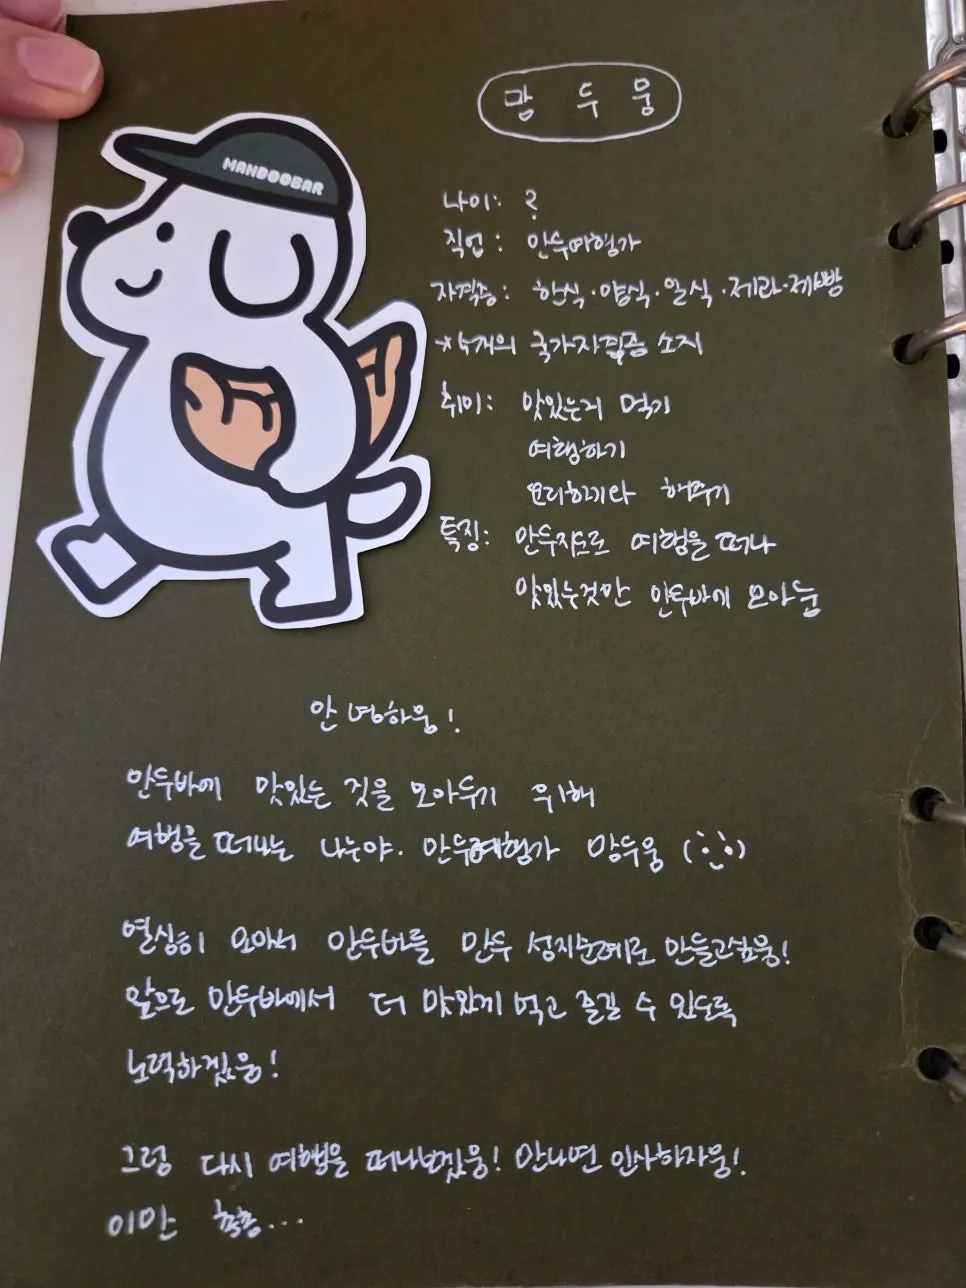 MANDOOBAR
망두웅
나이: ?
직업: 만두여행가
자격증: 한식·양식·일식·제과·제빵
*5개의 국가자격증 소지
취미: 맛있는거 먹기
여행하기
요리하기와 해주기
특징: 만두지도로 여행을 떠나
맛있는것만 만두바에 모아둠
안녕하웅!
만두바에 맛있는 것을 모아두기 위해
여행을 떠나는 나는야. 만두여행가 망두웅
열심히 모아서 만두바를 만두 성지순례로 만들고싶웅!
앞으로 만두바에서 더 맛있게 먹고 즐길 수 있도록
노력하겠웅!
그럼 다시 여행을 떠나보겠웅! 만나면 인사하자웅!
이만 총총...